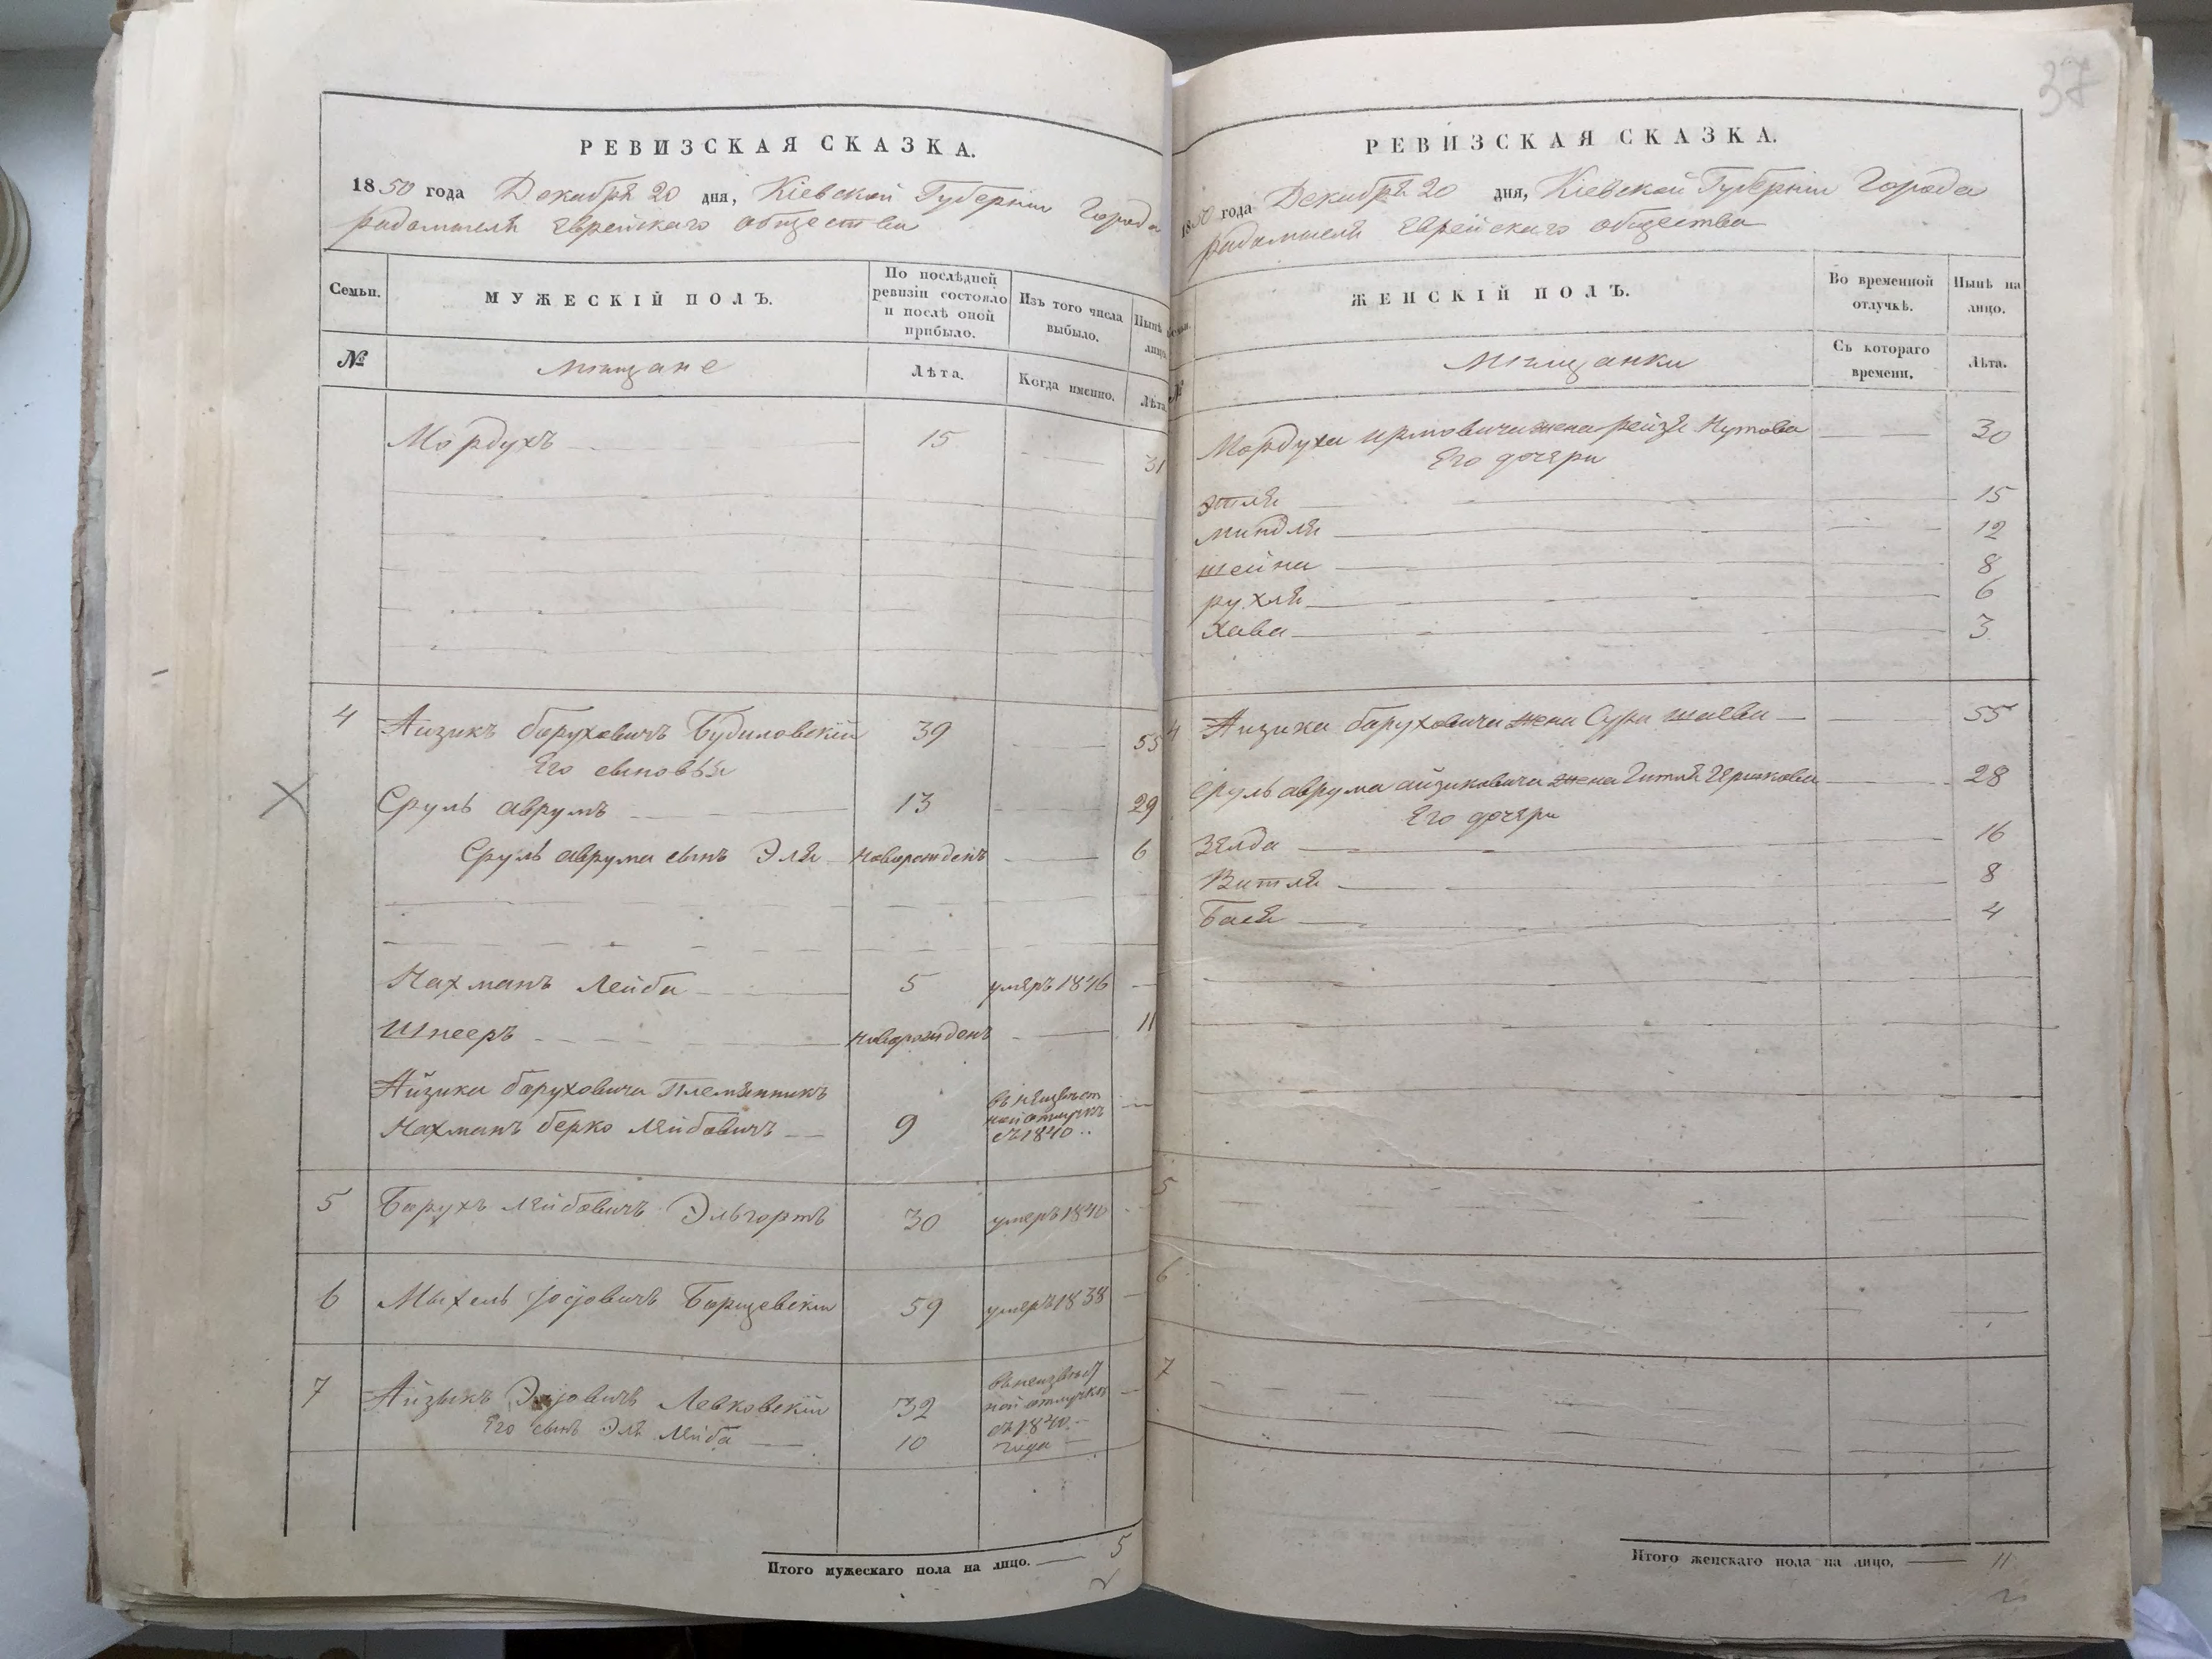 РЕВИЗСКАЯ СКАЗКА.
1850 года Декабря 20 дня, Кіевской Губерніи Города
радомысля Еврейскаго общества
Семьи.
МУЖЕСКІЙ ПОЛЪ.
По послѣдней
ревизіи состояло
и послѣ оной
прибыло.
Изъ того числа
выбыло.
Нынѣ
лицо.
№
мѣщане
Лѣта.
Когда именно.
Лѣта
Мордухъ 15 31
4 Айзикъ боруховичъ Будиловскій 39 55
Его сыновья
Сруль аврумъ 13 29
Сруль аврума сынъ Эля новорожденъ 6
Нахманъ Лейба 5 умеръ 1846
Шнееръ новорожденъ 11
Айзика боруховича Племянникъ
Нахманъ берко Лейбовичъ 9
въ неизвѣст
ной отлучкѣ
съ 1840
5 Борухъ Лейбовичъ Эльгортъ 30 умеръ 1840
6 Мыхель Іосіовичъ Борщевскій 59 умеръ 1838
7 Айзыкъ Левковскій 32
Его сынъ Эль Лейба 10
въ неизвѣст
ной отлучкѣ
съ 1840
года
Итого мужескаго пола на лицо. 5
37
РЕВИЗСКАЯ СКАЗКА.
1850 года Декабря 20 дня, Кіевской Губерніи Города
радомысля Еврейскаго общества
ЖЕНСКІЙ ПОЛЪ.
Во временной
отлучкѣ.
Нынѣ на
лицо.
№
мѣщанки
Съ котораго
времени.
Лѣта.
Мордуха жена рейзя Нутова 30
Его дочери
этля 15
миндля 12
шейна 8
рухля 6
Хава 3
4 Айзика боруховича жена Сура шаева 55
Сруль аврума айзиковича жена Гитля Гершкова 28
Его дочери
Зелда 16
Витля 8
Бася 4
5
6
7
Итого женскаго пола на лицо. 11